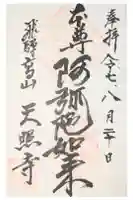 奉拝 令七、八月二十日
本尊
阿弥陀如来
飛騨高山
天照寺